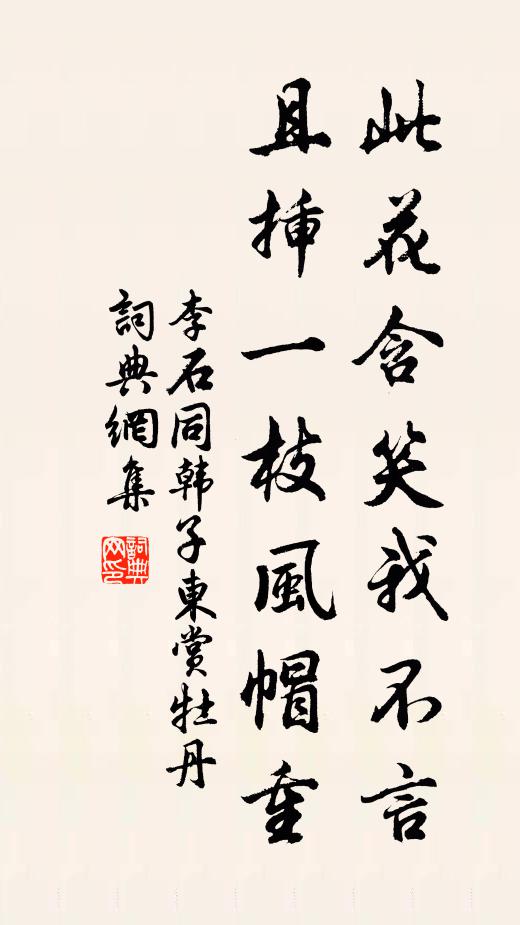 此花含笑我不言
且揷一枝風帽重
李石同韩子東賞牡丹
詞典網集
詞典网印